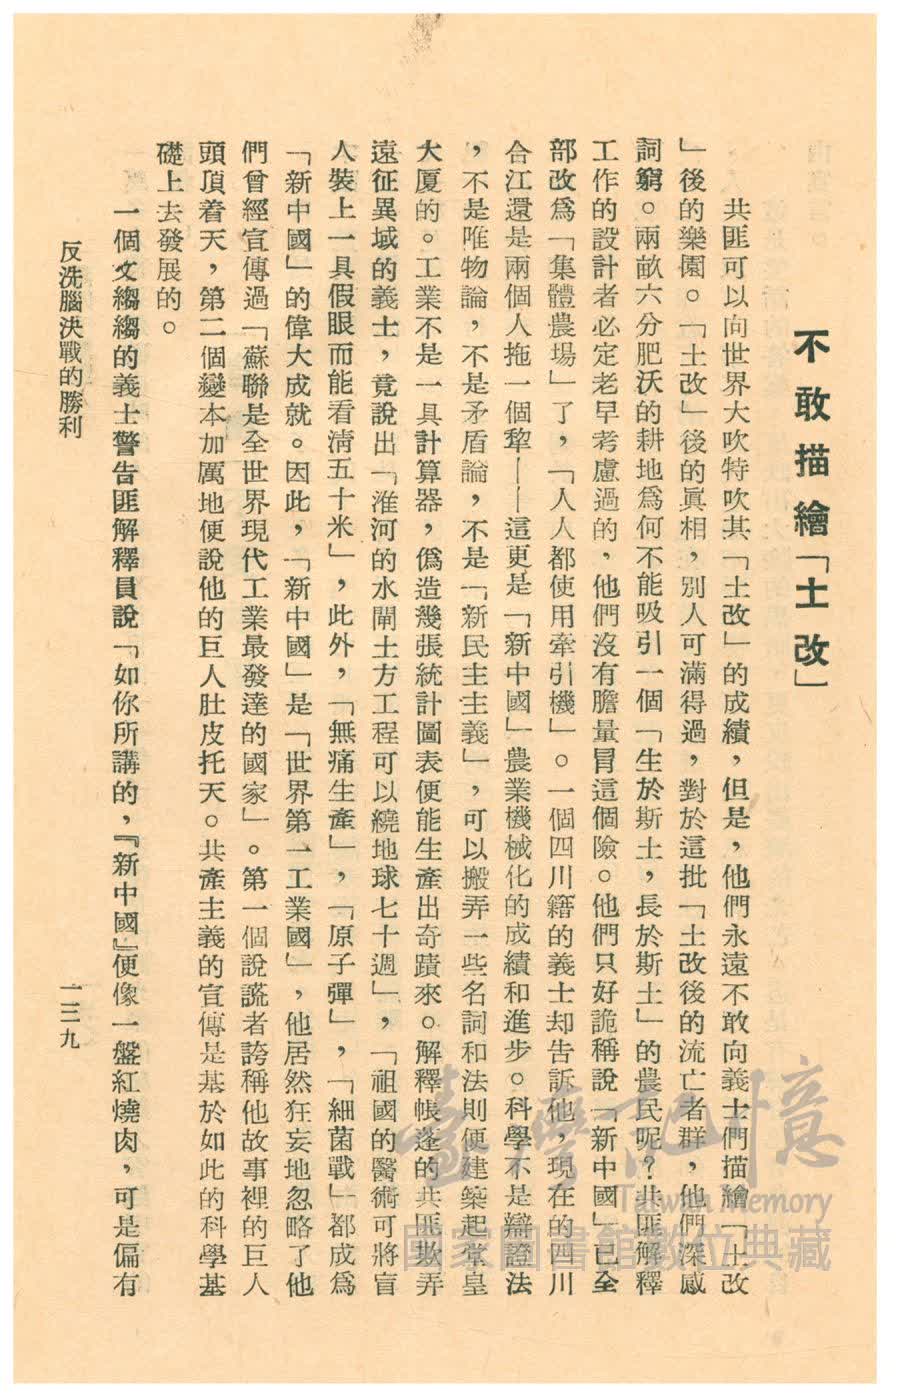 不敢描繪「土改」
共匪可以向世界大吹特吹其「土改」的成績，但是，他們永遠不敢向義士們描繪「土改
」後的樂園。「土改」後的眞相，別人可滿得過，對於這批「土改後的流亡者群，他們深感
詞窮。兩畝六分肥沃的耕地爲何不能吸引一個「生於斯土，長於斯土」的農民呢？共匪解釋
工作的設計者必定老早考慮過的，他們沒有膽量冒這個險。他們只好詭稱說「新中國」已全
部改爲「集體農場」了，「人人都使用牽引機」。一個四川籍的義士却告訴他，現在的四川
合江還是兩個人拖一個犂——這更是「新中國」農業機械化的成績和進步。科學不是辯證法
，不是唯物論，不是矛盾論，不是「新民主主義」，可以搬弄一些名詞和法則便建築起堂皇
大厦的。工業不是一具計算器，僞造幾張統計圖表便能生產出奇蹟來。解釋帳蓬的共匪欺弄
遠征異域的義士，竟說出「淮河的水閘土方工程可以繞地球七十週」，「祖國的醫術可將盲
人裝上一具假眼而能看淸五十米」，此外，「無痛生產」，「原子彈」，「細菌戰」都成爲
「新中國」的偉大成就。因此，「新中國」是「世界第一工業國」，他居然狂妄地忽略了他
們曾經宣傳過「蘇聯是全世界現代工業最發達的國家」。第一個說謊者誇稱他故事裡的巨人
頭頂着天，第二個變本加厲地便說他的巨人肚皮托天。共產主義的宣傳是基於如此的科學基
礎上去發展的。
一個文縐縐的義士警告匪解釋員說「如你所講的，『新中國』便像一盤紅燒肉，可是偏有
反洗腦決戰的勝利
一三九
臺灣記憶
Taiwan Memory
國家圖書館數位典藏